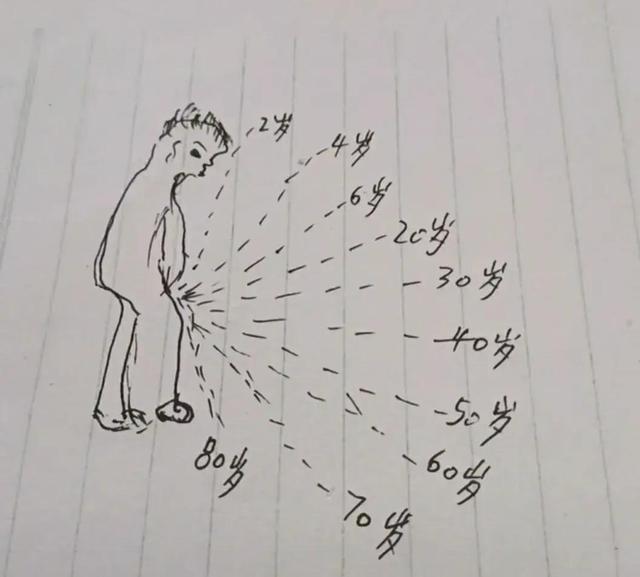 2岁
4岁
6岁
20岁
30岁
40岁
50岁
60岁
70岁
80岁